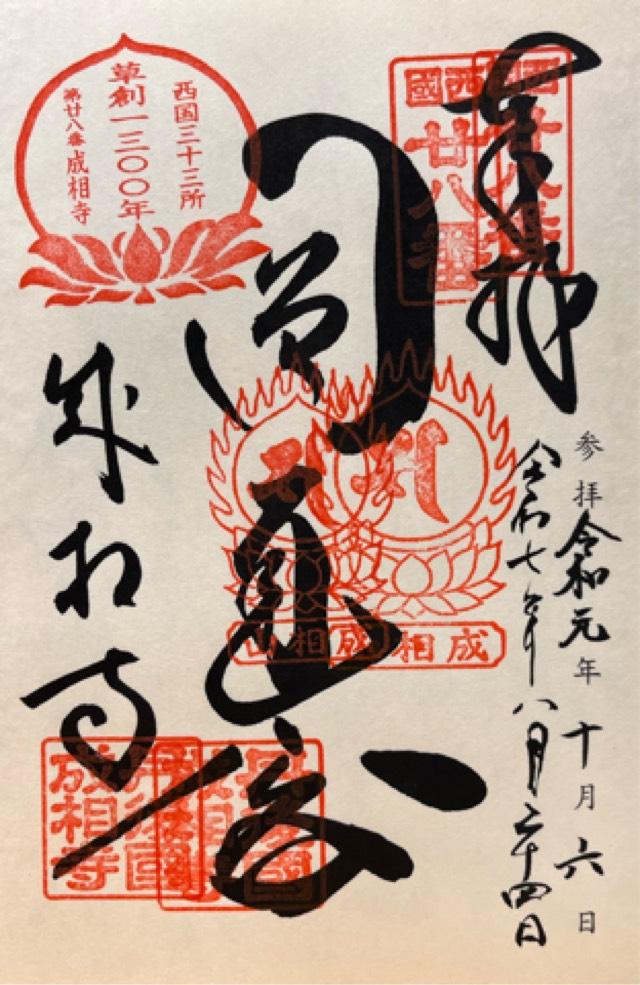 奉拝
西國
廿八番
参拝令和元年十月六日
令和七年八月二十四日
西国三十三所
草創一三〇〇年
第廿八番 成相寺
成相山
成相
成相寺
丹後國
成相寺